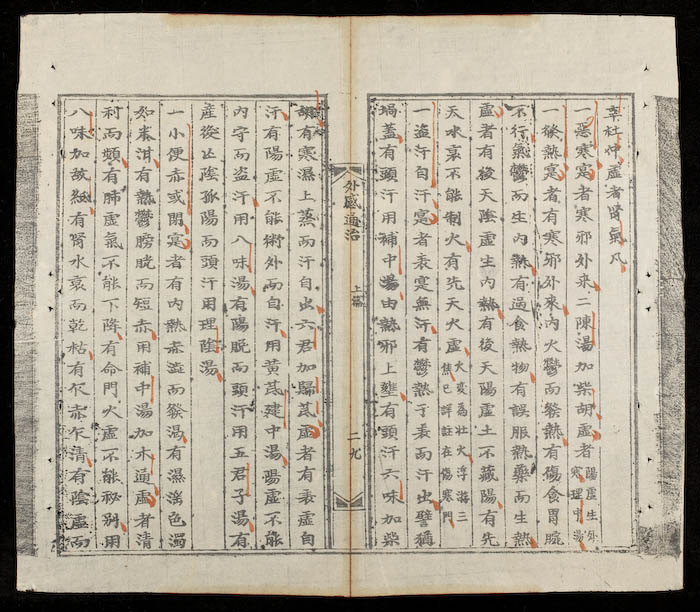 辛杜仲虛者腎氣凡
一惡寒寔者寒邪外来二陳湯加柴胡虛者陽虛生外寒理中湯
一發熱寔者有寒邪外来内火鬱而發熱有傷食胃脘
不行氣鬱而生内熱有過食熱物有誤服熱藥而生熱
虛者有後天陰虛生内熱有後天陽虛土不藏陽有先
天水衰不能制火有先天火虛火変為壮火浮游三焦已詳註在傷寒門
一盗汗自汗寔者表寔無汗有鬱熱于表而汗出譬猶
堝蓋有頭汗用補中湯由熱邪上壅有頭汗六味加柴
外感通治
上篇
二九
胡有寒濕上蒸而汗自出六君加歸芪虛者有表虛自
汗有陽虛不能衛外而自汗用黄芪建中湯陽虛不能
内守而盗汗用八味湯有陽脱而頭汗用五君子湯有
産後亾陰孤陽而頭汗用理陰湯
一小便赤或閉寔者有内熱赤澁而發渴有濕濁色濁
如末泔有熱鬱膀胱而短赤用補中湯加木通虛者清
利而頻有肺虛氣不能下降有命門火虛不能秘别用
八味加故紙有腎水衰而乾枯有乍赤乍清有陰虛而